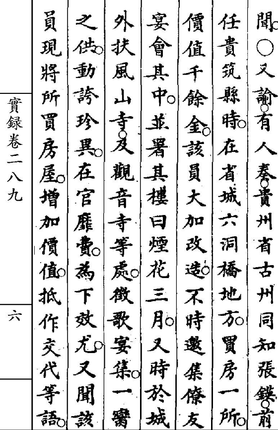 聞。○又諭。有人奏。貴州省古州同知張鍈。前
任貴筑縣時。在省城六洞橋地方。買房一所。
價值千餘金。該員大加改造。不時邀集僚友
宴會其中。並署其樓曰煙花三月。又時於城
外扶風山寺。及觀音寺等處。徵歌宴集。一饗
之供。動誇珍異。在官靡費。為下效尤。又聞該
員現將所買房屋。增加價值。抵作交代等語。
實錄卷二八九
六